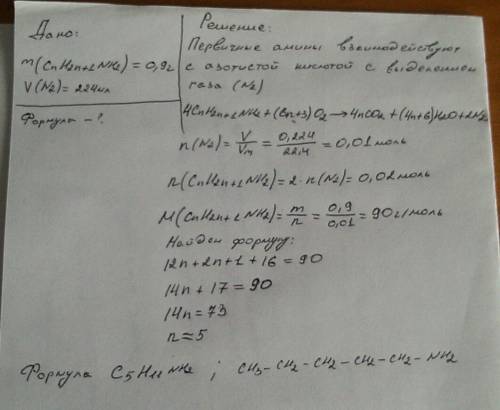 Дано:
m(CnH2n+1NH2) = 0,9г
V(N2) = 224мл
Формула - ?
Решение:
Первичные амины взаимодействуют
с азотистой кислотой с выделением
газа (N2)
4CnH2n+1NH2 + (6n+3)O2 → 4nCO2 + (4n+6)H2O + 2N2
n(N2) = V/Vm = 0,224/22,4 = 0,01 моль
n(CnH2n+1NH2) = 2·n(N2) = 0,02 моль
M(CnH2n+1NH2) = m/n = 0,9/0,01 = 90 г/моль
Найдем формулу:
12n + 2n + 1 + 16 = 90
14n + 17 = 90
14n = 73
n ≈ 5
Формула C5H11NH2 ; CH3-CH2-CH2-CH2-CH2-NH2